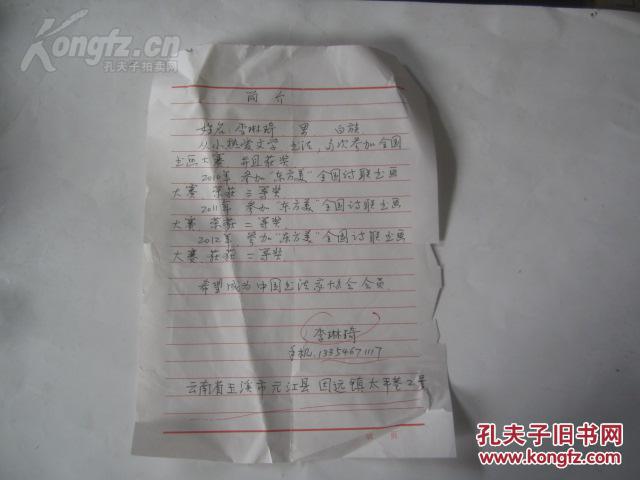 Kongfz.cn
孔夫子拍卖网
简介
姓名:李琳琦 男 白族
从小热爱文学 书法,多次参加全国
书画大赛 并且获奖
2010年 参加"东方美"全国诗联书画
大赛 荣获三等奖
2011年 参加"东方美"全国诗联书画
大赛 荣获二等奖
2012年 参加"东方美"全国诗联书画
大赛 获获二等奖
希望成为中国书法家协会会员
李琳琦
手机.13354671117
云南省玉溪市元江县 因远镇太平巷2号
孔夫子旧书网
www.kongfz.com